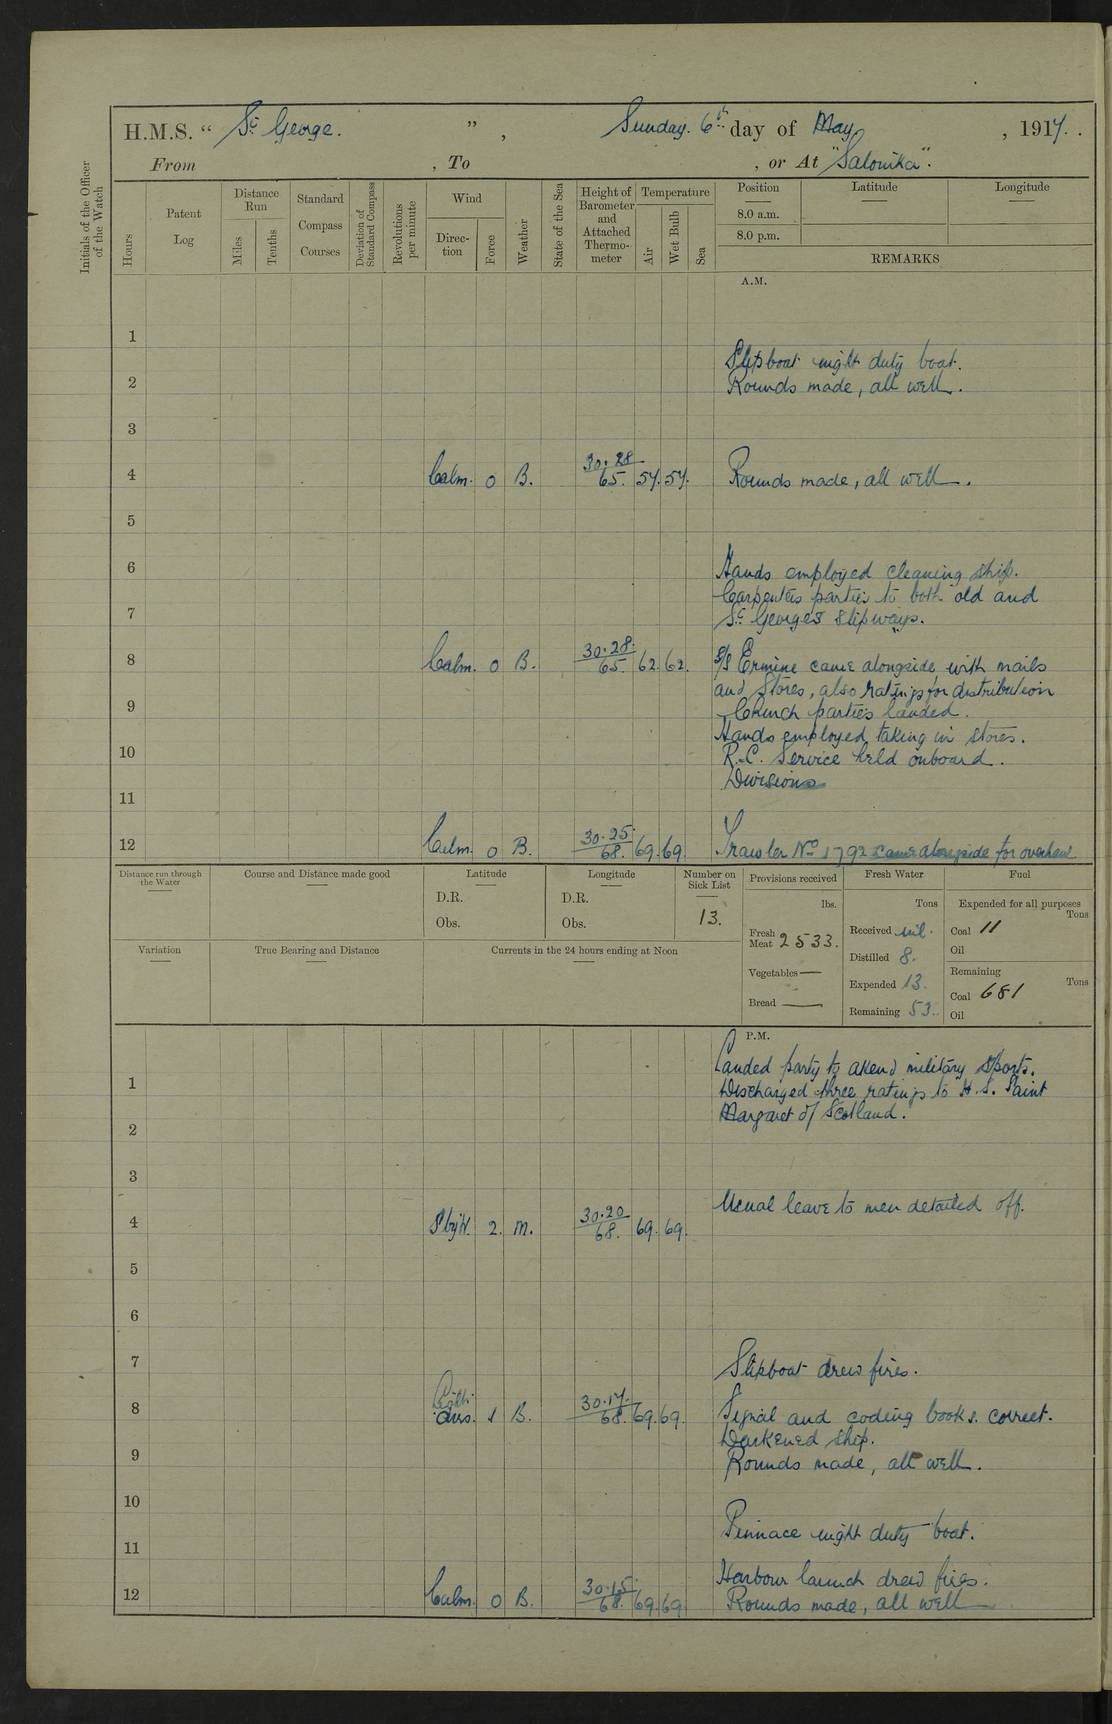 H.M.S. “ St George. ” , Sunday. 6th day of May , 1917.
From , To , or At "Salonika".
Initials of the Officer of the Watch
Hours
Patent Log
Distance Run
Miles
Tenths
Standard Compass Courses
Deviation of Standard Compass
Revolutions per minute
Wind
Direction
Force
Weather
State of the Sea
Height of Barometer and Attached Thermometer
Temperature
Air
Wet Bulb
Sea
Position
8.0 a.m.
8.0 p.m.
Latitude
Longitude
REMARKS
A.M.
1
Slipboat night duty boat.
2 Rounds made, all well.
3
4 Calm. 0 B. 30.28 65. 57. 57. Rounds made, all well.
5
6 Hands employed cleaning ship.
Carpenters parties to both old and
7 St Georges slipways.
8 Calm. 0 B. 30.28. 65. 62. 62. S/S Ermine came alongside with mails
and stores, also ratings for distribution
9 Church parties landed.
Hands employed taking in stores.
10 R.C. Service held onboard.
Divisions
11
12 Calm. 0 B. 30.25. 68. 69. 69. Trawler No 1792 came alongside for overhaul
Distance run through the Water
Course and Distance made good
Latitude
D.R.
Obs.
Longitude
D.R.
Obs.
Number on Sick List
13.
Provisions received
lbs.
Fresh Meat 2533.
Vegetables —
Bread —
Fresh Water
Tons
Received nil.
Distilled 8.
Expended 13.
Remaining 53.
Fuel
Expended for all purposes
Tons
Coal 11
Oil
Remaining
Tons
Coal 681
Oil
Variation
True Bearing and Distance
Currents in the 24 hours ending at Noon
P.M.
Landed party to attend military sports.
1 Discharged three ratings to H.S. Saint
Margaret of Scotland.
2
3
Usual leave to men detailed off.
4 S by W. 2. m. 30.20 68. 69. 69.
5
6
7 Slipboat drew fires.
8 Light airs. 1 B. 30.17. 68. 69. 69. Signal and coding books correct.
Darkened ship.
9 Rounds made, all well.
10
Pinnace night duty boat.
11
Harbour launch drew fires.
12 Calm. 0 B. 30.15. 68. 69. 69 Rounds made, all well